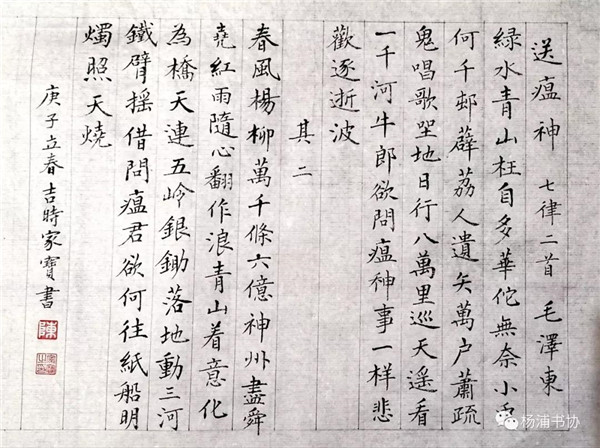 送瘟神 七律二首 毛澤東
緑水青山枉自多華佗無奈小虫
何千邨薜荔人遺矢萬户蕭疏
鬼唱歌坐地日行八萬里巡天遥看
一千河牛郎欲問瘟神事一樣悲
歡逐逝波
其二
春風楊柳萬千條六億神州盡舜
堯紅雨隨心翻作浪青山着意化
為橋天連五岭銀鋤落地動三河
鐵臂摇借問瘟君欲何往紙船明
燭照天燒
庚子立春吉時家寶書
陳
杨浦书协